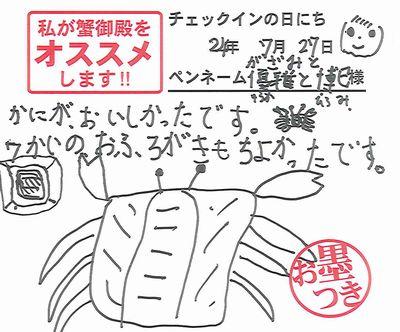 私が蟹御殿を
オススメ
します!!
チェックインの日にち
24年 7月 27日
ペンネーム
と
様
かにが、おいしかったです。
ウかいの、おふろがきもちよかったです。
お墨
つき